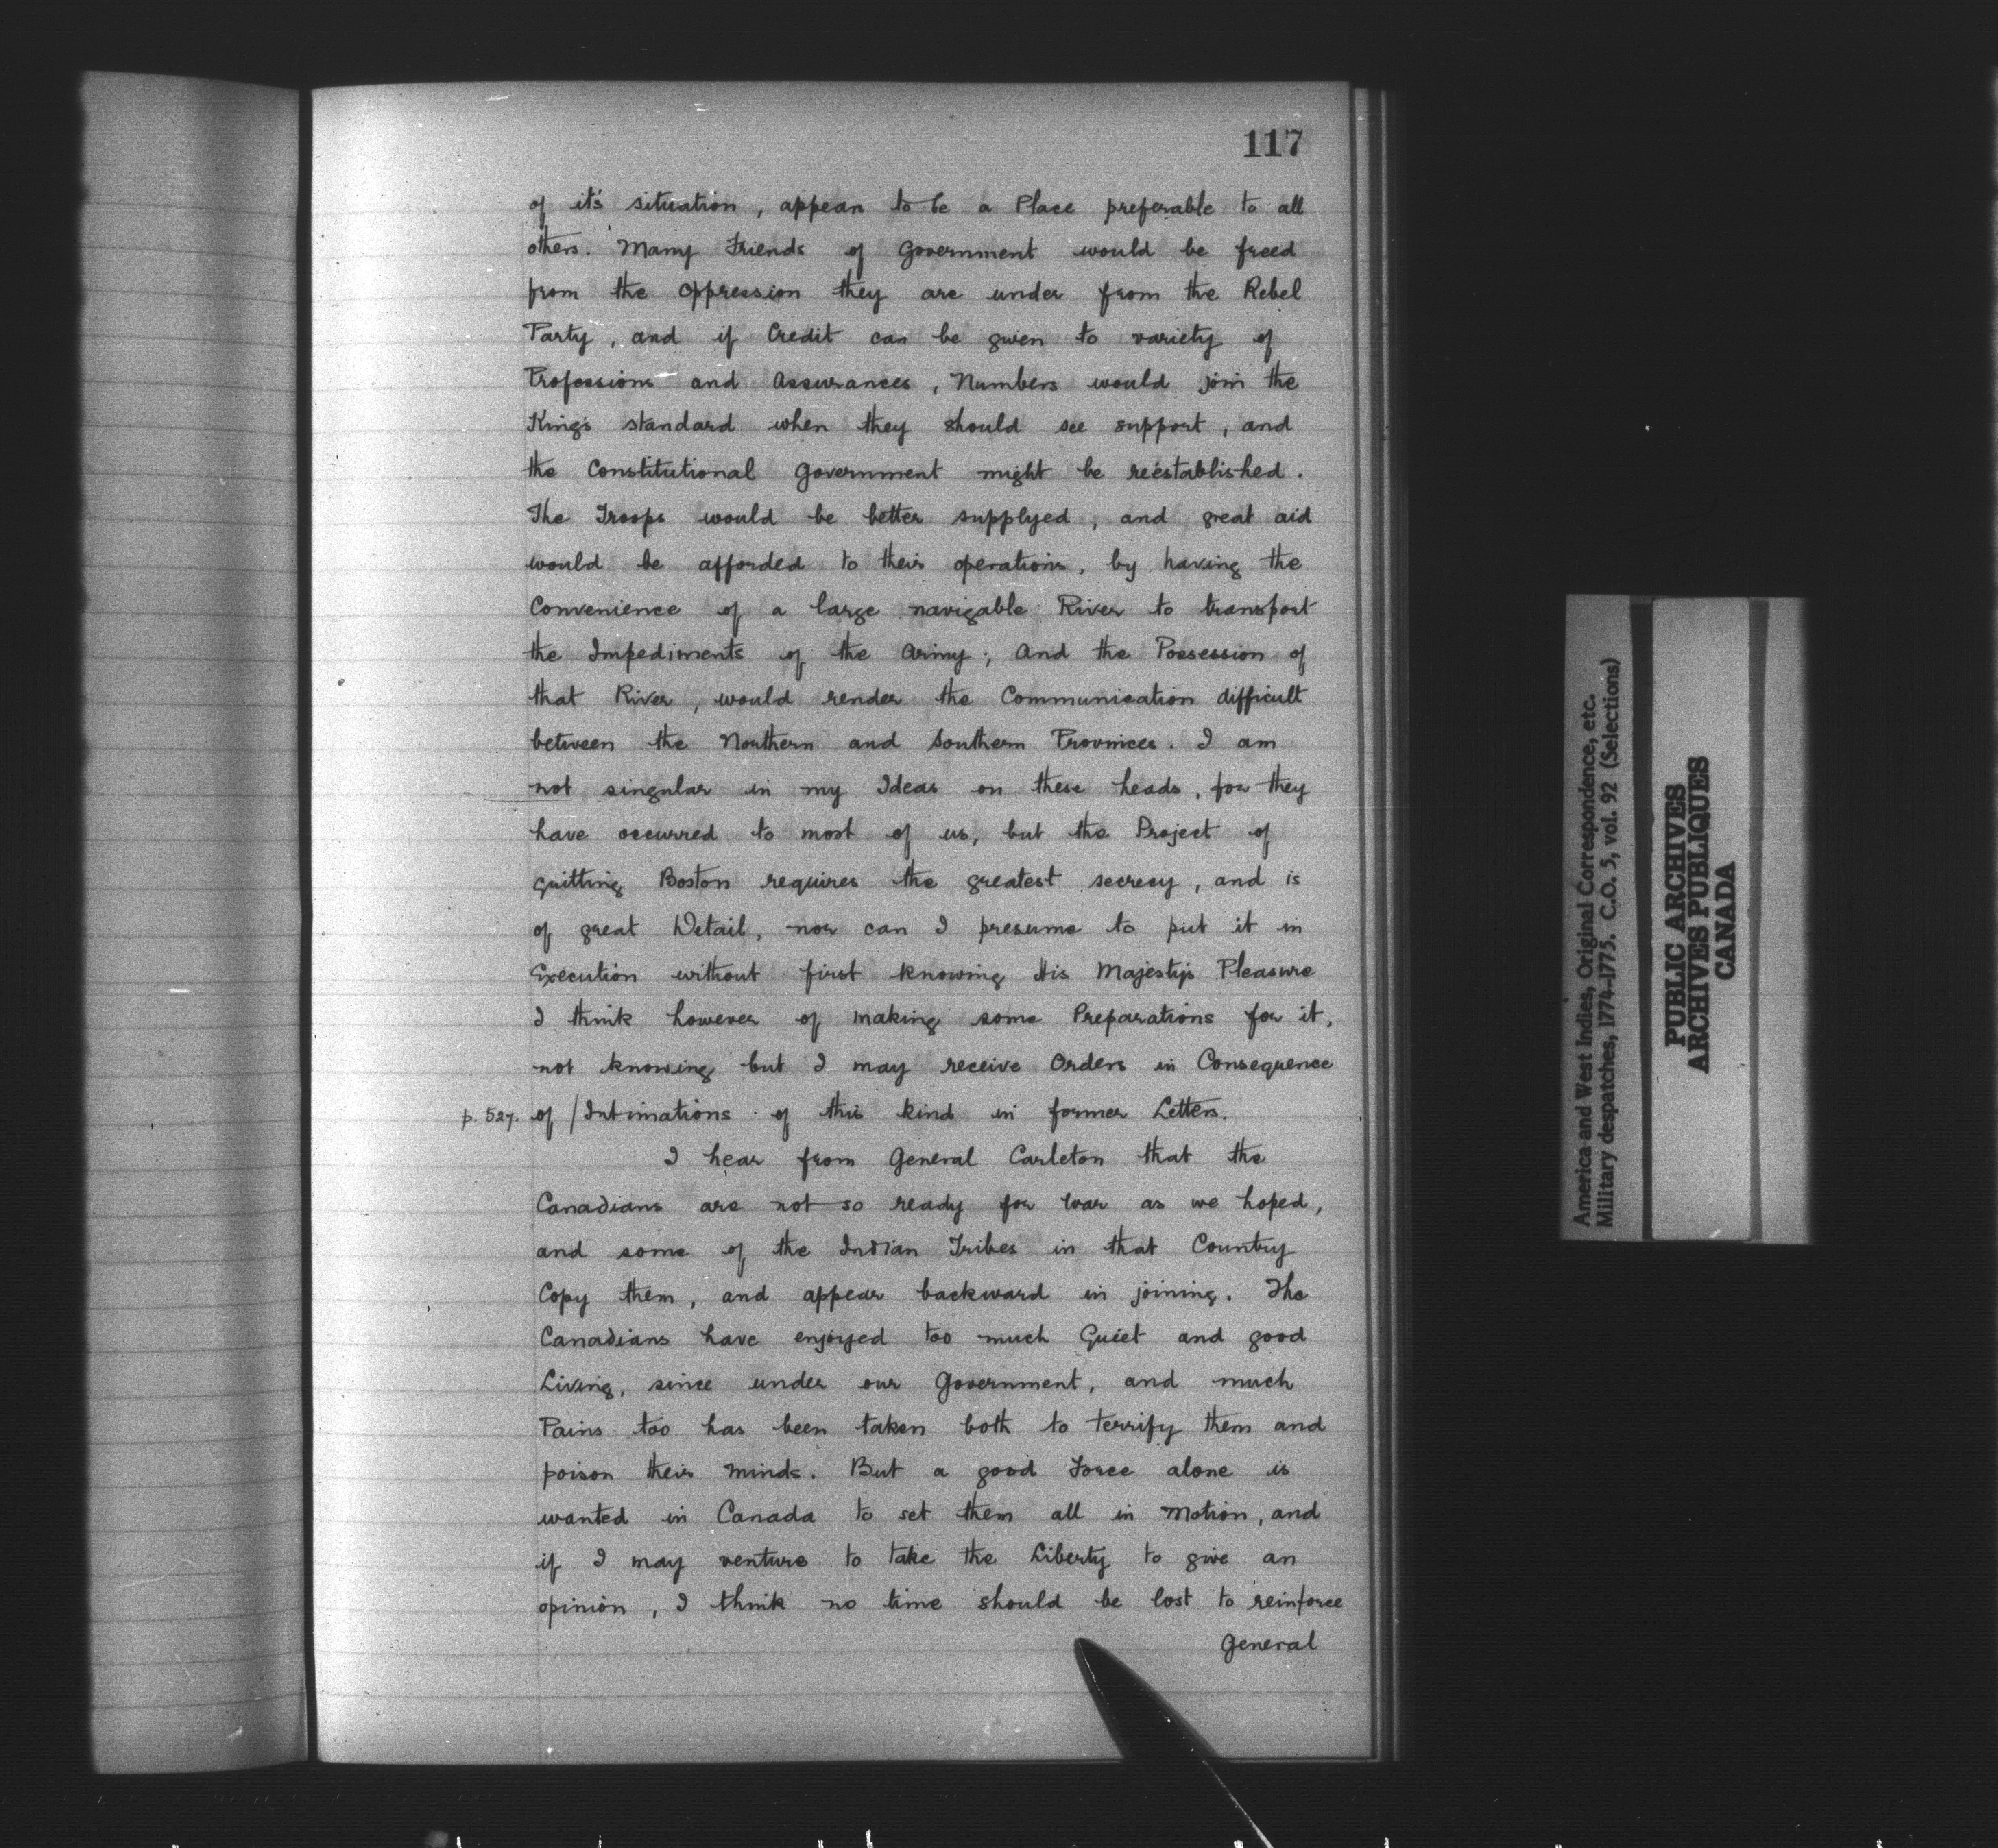 117
of it's situation, appears to be a Place preferable to all
others. Many Friends of Government would be freed
from the oppression they are under from the Rebel
Party, and if Credit can be given to variety of
Professions and Assurances, Numbers would join the
King's standard when they should see support, and
the Constitutional Government might be reéstablished.
The Troops would be better supplyed, and great aid
would be afforded to their operations, by having the
Convenience of a large navigable River to transport
the Impediments of the Army; And the Possession of
that River, would render the Communication difficult
between the Northern and Southern Provinces. I am
not singular in my Ideas on these heads, for they
have occurred to most of us, but the Project of
quitting Boston requires the greatest secrecy, and is
of great Detail, nor can I presume to put it in
Execution without first knowing His Majesty's Pleasure
I think however of making some Preparations for it,
not knowing but I may receive Orders in Consequence
p. 527. of / Intimations of this kind in former Letters.
I hear from General Carleton that the
Canadians are not so ready for War as we hoped,
and some of the Indian Tribes in that Country
Copy them, and appear backward in joining. The
Canadians have enjoyed too much Quiet and good
Living, since under our Government, and much
Pains too has been taken both to terrify them and
poison their minds. But a good Force alone is
wanted in Canada to set them all in Motion, and
if I may venture to take the Liberty to give an
opinion, I think no time should be lost to reinforce
General
America and West Indies, Original Correspondence, etc.
Military despatches, 1774-1775. C.O. 5, vol. 92 (Selections)
PUBLIC ARCHIVES
ARCHIVES PUBLIQUES
CANADA